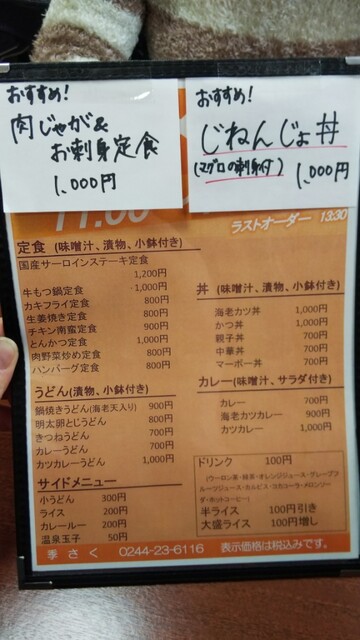 おすすめ!
肉じゃが&
お刺身定食
1,000円
おすすめ!
じねんじょ丼
(マグロの刺身付)
1,000円
ラストオーダー 13:30
定食 (味噌汁、漬物、小鉢付き)
国産サーロインステーキ定食
1,200円
牛もつ鍋定食 1,000円
カキフライ定食 800円
生姜焼き定食 800円
チキン南蛮定食 900円
とんかつ定食 1,000円
肉野菜炒め定食 800円
ハンバーグ定食 800円
うどん(漬物、小鉢付き)
鍋焼きうどん(海老天入り) 900円
明太卵とじうどん 800円
きつねうどん 700円
カレーうどん 700円
カツカレーうどん 1,000円
サイドメニュー
小うどん 300円
ライス 200円
カレールー 200円
温泉玉子 50円
丼 (味噌汁、漬物、小鉢付き)
海老カツ丼 1,000円
かつ丼 1,000円
親子丼 700円
中華丼 700円
マーボー丼 700円
カレー(味噌汁、サラダ付き)
カレー 700円
海老カツカレー 900円
カツカレー 1,000円
ドリンク 100円
(ウーロン茶・緑茶・オレンジジュース・グレープフ
ルーツジュース・カルピス・コカコーラ・メロンソー
ダ・ホットコーヒー)
半ライス 100円引き
大盛ライス 100円増し
季さく 0244-23-6116 表示価格は税込みです。